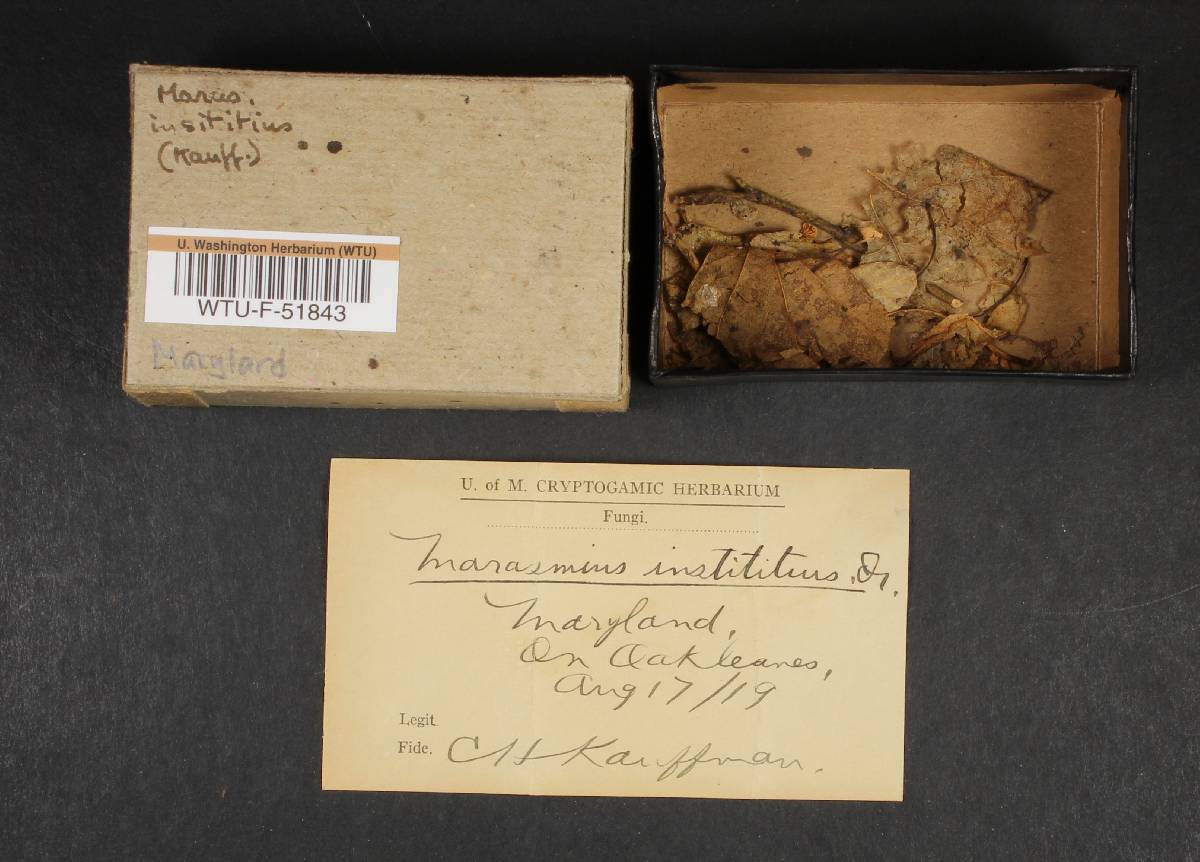 Maras.
insititius
(Kauff.)
U. Washington Herbarium (WTU)
WTU-F-51843
Maryland
U. of M. CRYPTOGAMIC HERBARIUM
Fungi.
Marasmius instititius. Fr.
Maryland,
On Oak leaves,
Aug 17/19
Legit.
Fide. C H Kauffman.